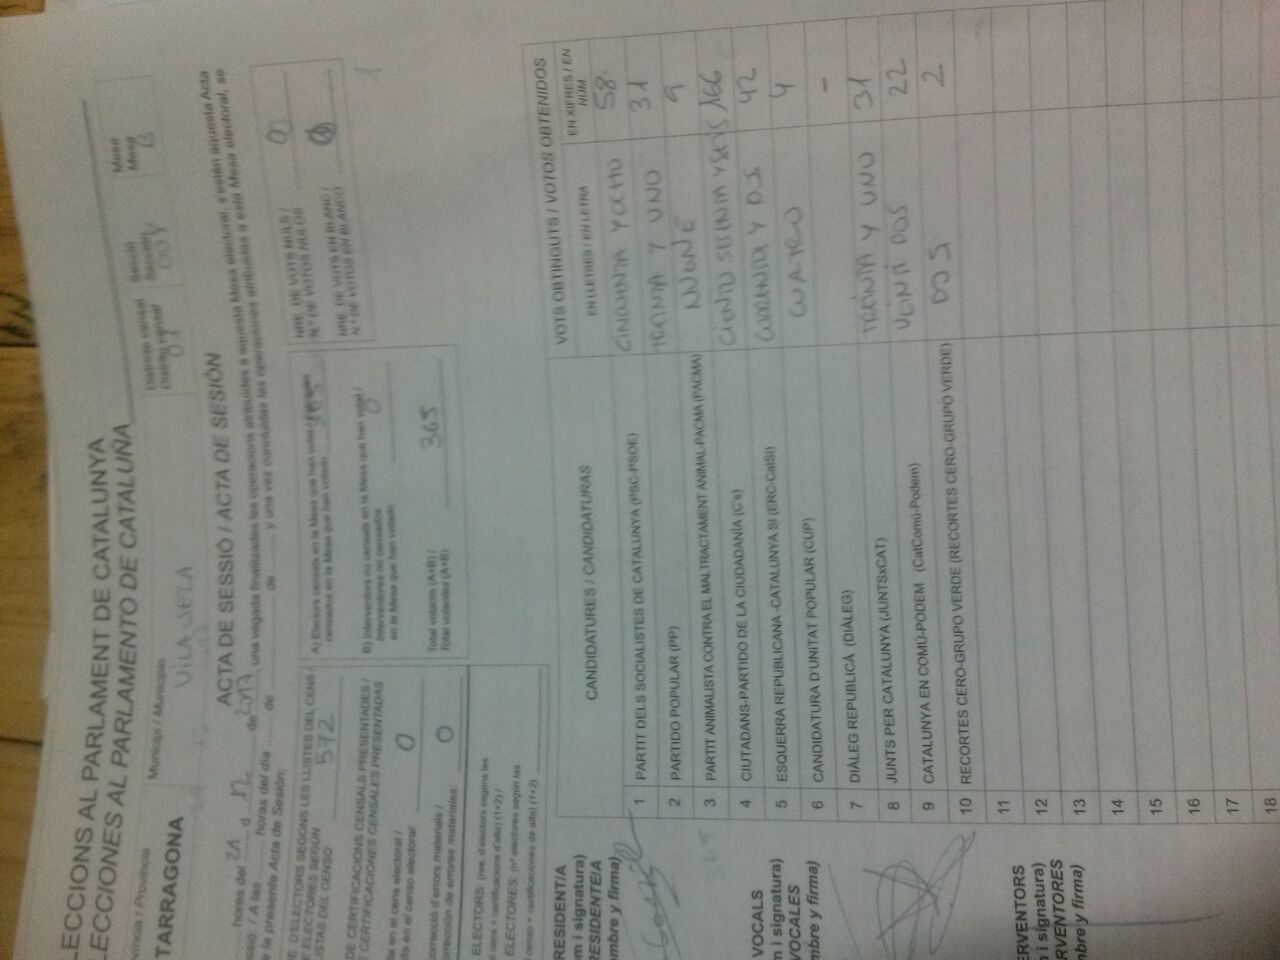 LECCIONS AL PARLAMENT DE CATALUNYA
LECCIONES AL PARLAMENTO DE CATALUÑA
víncia / Provincia
TARRAGONA
Municipi / Municipio
VILA SECA
Districte censal
Distrito censal
01
Secció
Sección
004
Mesa
Mesa
B
ACTA DE SESSIÓ / ACTA DE SESIÓN
hores del 21 d de 2017 una vegada finalitzades les operacions atribuïdes a aquesta Mesa electoral, s'estén aquesta Acta
sessió. / A las horas del día de de y una vez concluidas las operaciones atribuidas a esta Mesa electoral, se
e la presente Acta de Sesión:
E. D'ELECTORS SEGONS LES LLISTES DEL CENS /
E ELECTORES SEGÚN
ISTAS DEL CENSO
572
DE CERTIFICACIONS CENSALS PRESENTADES /
E CERTIFICACIONES CENSALES PRESENTADAS
ta en el cens electoral /
lta en el censo electoral
0
orrecció d'errors materials /
orrección de errores materiales
0
ELECTORS: (nre. d'electors segons les
cens + certificacions d'alta) (1+2) /
ELECTORES: (nº electores según las
censo + certificaciones de alta) (1+2)
A) Electors censats en la Mesa que han votat /
censados en la Mesa que han votado
365
B) Interventors no censats en la Mesa que han votat /
Interventores no censados
en la Mesa que han votado
0
Total votants (A+B) /
Total votantes (A+B)
365
NRE. DE VOTS NULS /
N.º DE VOTOS NULOS
0
NRE. DE VOTS EN BLANC /
N.º DE VOTOS EN BLANCO
0
1
CANDIDATURES / CANDIDATURAS
VOTS OBTINGUTS / VOTOS OBTENIDOS
EN LLETRES / EN LETRA
EN XIFRES / EN NÚM.
1 PARTIT DELS SOCIALISTES DE CATALUNYA (PSC-PSOE) CINCUENTA Y OCHO 58.
2 PARTIDO POPULAR (PP) TREINTA Y UNO 31
3 PARTIT ANIMALISTA CONTRA EL MALTRACTAMENT ANIMAL-PACMA (PACMA) NUEVE 9
4 CIUTADANS-PARTIDO DE LA CIUDADANÍA (C's) CIENTO SESENTA Y SEIS 166
5 ESQUERRA REPUBLICANA -CATALUNYA SÍ (ERC-CatSí) CUARENTA Y DOS 42
6 CANDIDATURA D'UNITAT POPULAR (CUP) CUATRO 4
7 DIÀLEG REPUBLICÀ (DIÀLEG) -
8 JUNTS PER CATALUNYA (JUNTSxCAT) TREINTA Y UNO 31
9 CATALUNYA EN COMÚ-PODEM (CatComú-Podem) VEINTI DOS 22
10 RECORTES CERO-GRUPO VERDE (RECORTES CERO-GRUPO VERDE) DOS 2.
11
12
13
14
15
16
17
18
RESIDENT/A
m i signatura)
RESIDENTE/A
mbre y firma)
VOCALS
m i signatura)
VOCALES
mbre y firma)
ERVENTORS
m i signatura)
ERVENTORES
mbre y firma)